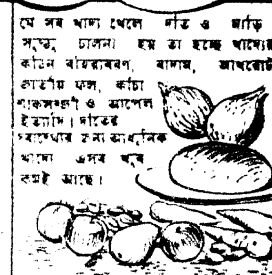 যে সব খাদ্য খেলে দাঁত ও মাড়ি
সুষ্ঠু চালনা হয় তা হচ্ছে খাদ্যের
কঠিন বহিরাবরণ, বাদাম, আখরোট
জাতীয় ফল, কাঁচা
শাকসবজী ও আপেল
ইত্যাদি। দাঁতের
স্বাস্থ্যের জন্য আধুনিক
খাদ্যে এসব খুব
কমই আছে।